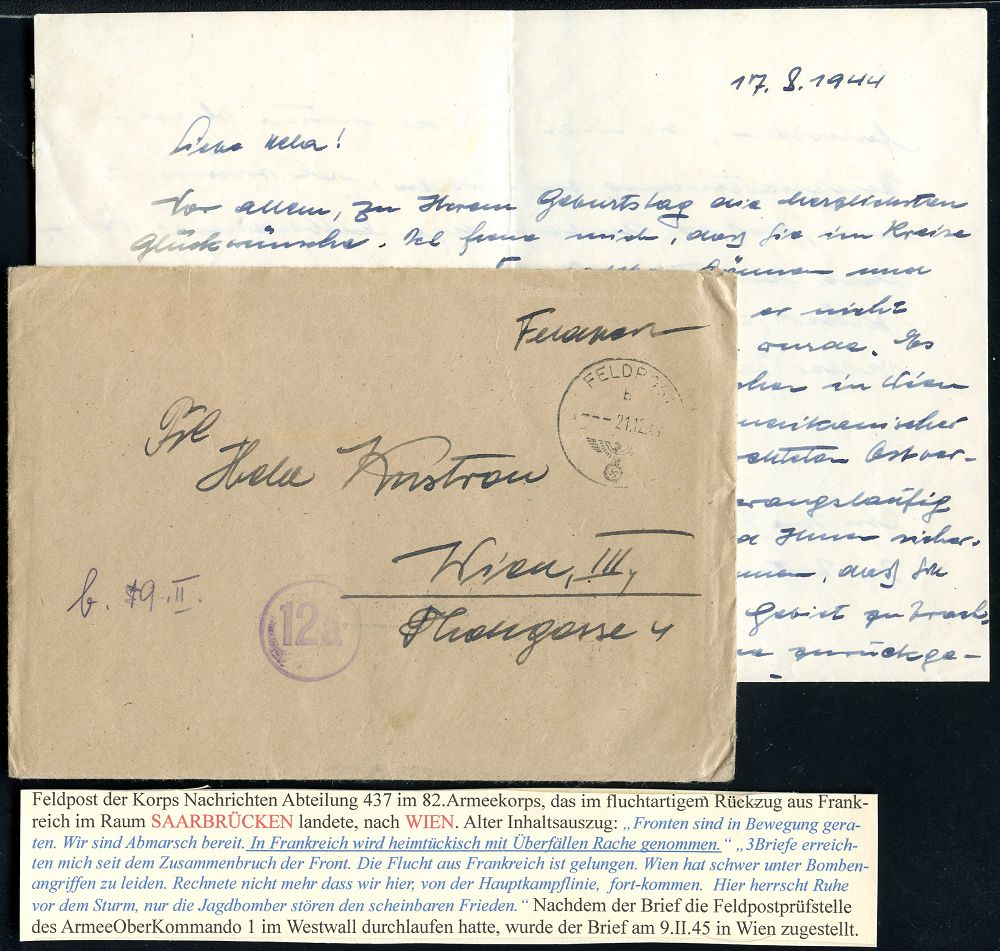 17.8.1944
Liebe Hella!
Vor allem, zu Ihrem Geburtstag die herzlichsten
Glückwünsche. Ich freue mich, daß Sie im Kreise
können und
er nicht
wurde. Es
in Wien
amerikanischer
Ostver-
zwangsläufig
Ihnen sicher-
daß Sie
Gebiet zu
zurückge-
Feldpost
FELDPOST
b
21.12.44
Frl
Hela
Wien, III,
gasse 4
b. 9.II.
12a
Feldpost der Korps Nachrichten Abteilung 437 im 82.Armeekorps, das im fluchtartigem Rückzug aus Frank-
reich im Raum SAARBRÜCKEN landete, nach WIEN. Alter Inhaltsauszug: „Fronten sind in Bewegung gera-
ten. Wir sind Abmarsch bereit. In Frankreich wird heimtückisch mit Überfällen Rache genommen.“ „3Briefe erreich-
ten mich seit dem Zusammenbruch der Front. Die Flucht aus Frankreich ist gelungen. Wien hat schwer unter Bomben-
angriffen zu leiden. Rechnete nicht mehr dass wir hier, von der Hauptkampflinie, fort-kommen. Hier herrscht Ruhe
vor dem Sturm, nur die Jagdbomber stören den scheinbaren Frieden.“ Nachdem der Brief die Feldpostprüfstelle
des ArmeeOberKommando 1 im Westwall durchlaufen hatte, wurde der Brief am 9.II.45 in Wien zugestellt.